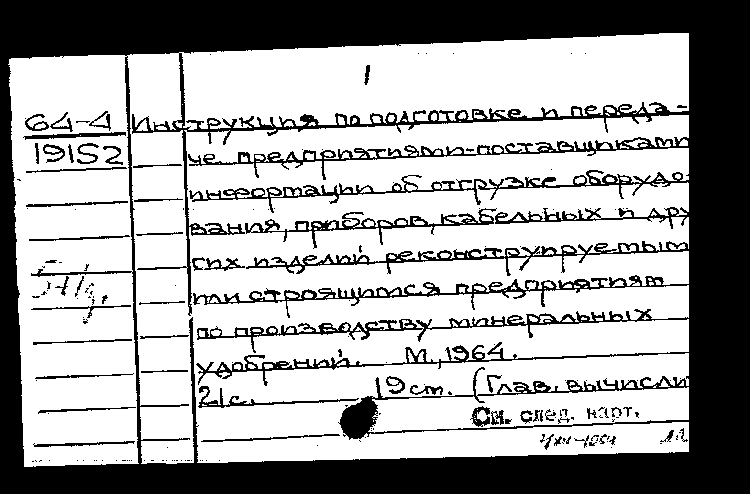 1
64-4 Инструкция по подготовке и переда-
19152 че предприятиями-поставщиками
информации об отгрузке оборудо-
вания, приборов, кабельных и дру
гих изделий реконструируемым
или строящимся предприятиям
по производству минеральных
удобрений. М., 1964.
21с. 19см. (Глав. вычисли
См. след. карт.